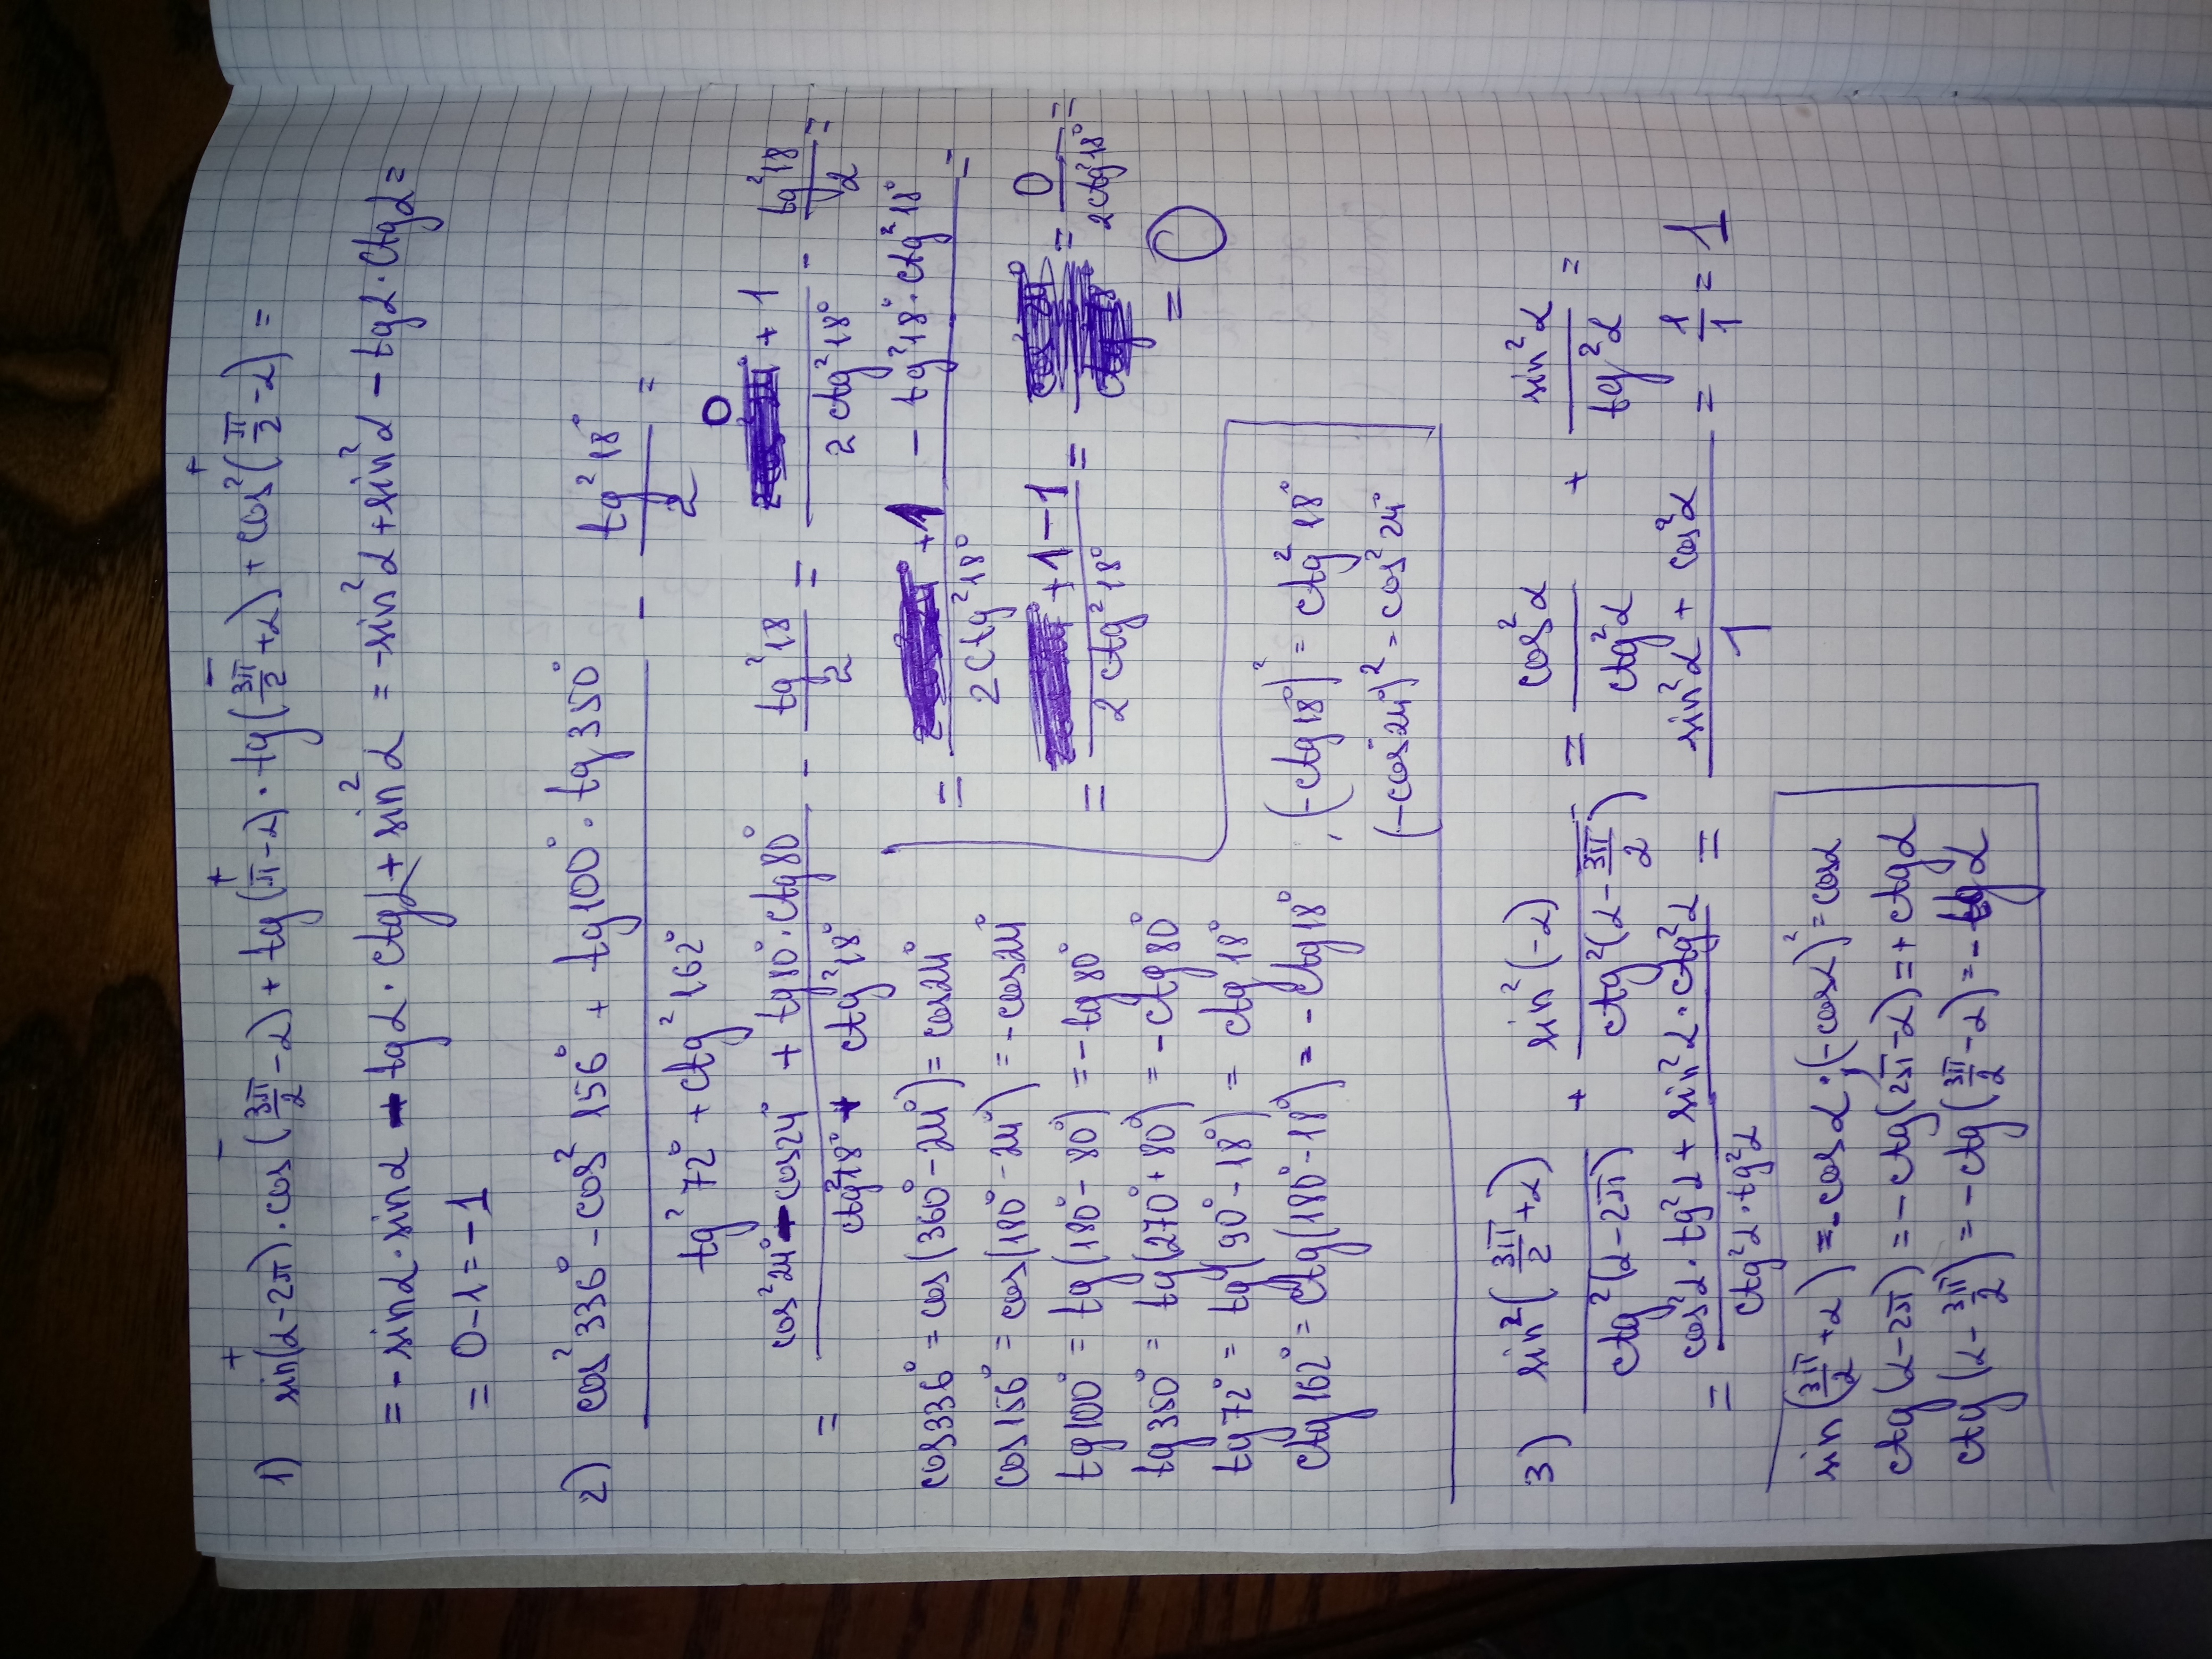 1) sin(α-2π)·cos(3π/2-α) + tg(π-α)·tg(3π/2+α) + cos²(π/2-α) =
= - sinα·sinα - tgα·ctgα + sin²α = -sin²α + sin²α - tgα·ctgα =
= 0-1 = -1
2) cos²336° - cos²156° + tg100°·tg350° / tg²72° + ctg²162° - tg²18°/2 =
= cos²24° - cos24° + tg80°·ctg80° / ctg²18° + ctg²18° - tg²18/2 = 0 + 1 / 2ctg²18° - tg²18/2 =
cos336° = cos(360°-24°) = cos24°
= +1 / 2ctg²18° - tg²18°·ctg²18° =
cos156° = cos(180°-24°) = -cos24°
= +1-1 / 2ctg²18° = = 0/2ctg²18° =
tg100° = tg(180°-80°) = -tg80°
= 0
tg350° = tg(270°+80°) = -ctg80°
tg72° = tg(90°-18°) = ctg18°
ctg162° = ctg(180°-18°) = -ctg18°
(-ctg18°)² = ctg²18°
(-cos24°)² = cos²24°
3) sin²(3π/2+α) / ctg²(α-2π) + sin²(-α) / ctg²(α-3π/2) = cos²α/ctg²α + sin²α/tg²α =
= cos²α·tg²α + sin²α·ctg²α / ctg²α·tg²α = sin²α + cos²α / 1 = 1/1 = 1
sin(3π/2+α) = -cosα·(-cosα)² = cosα
ctg(α-2π) = -ctg(2π-α) = +ctgα
ctg(α-3π/2) = -ctg(3π/2-α) = -tgα